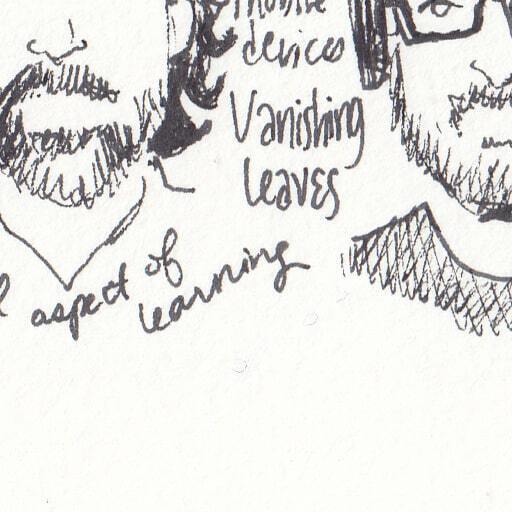 mobile
devices
Vanishing
leaves
aspect of
learning